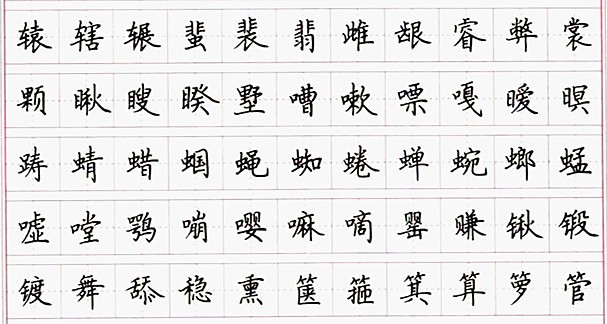 辕辖辗蜚裴翡雌龈睿弊裳
颗瞅瞍睽墅嘈嗽嘌嘎暧暝
踌蜻蜡蝈蝇蜘蜷蝉蜿螂蜢
嘘嘡鹗嘣嘤嘛嘀罂赚锹锻
镀舞舔稳熏箧箍箕算箩管